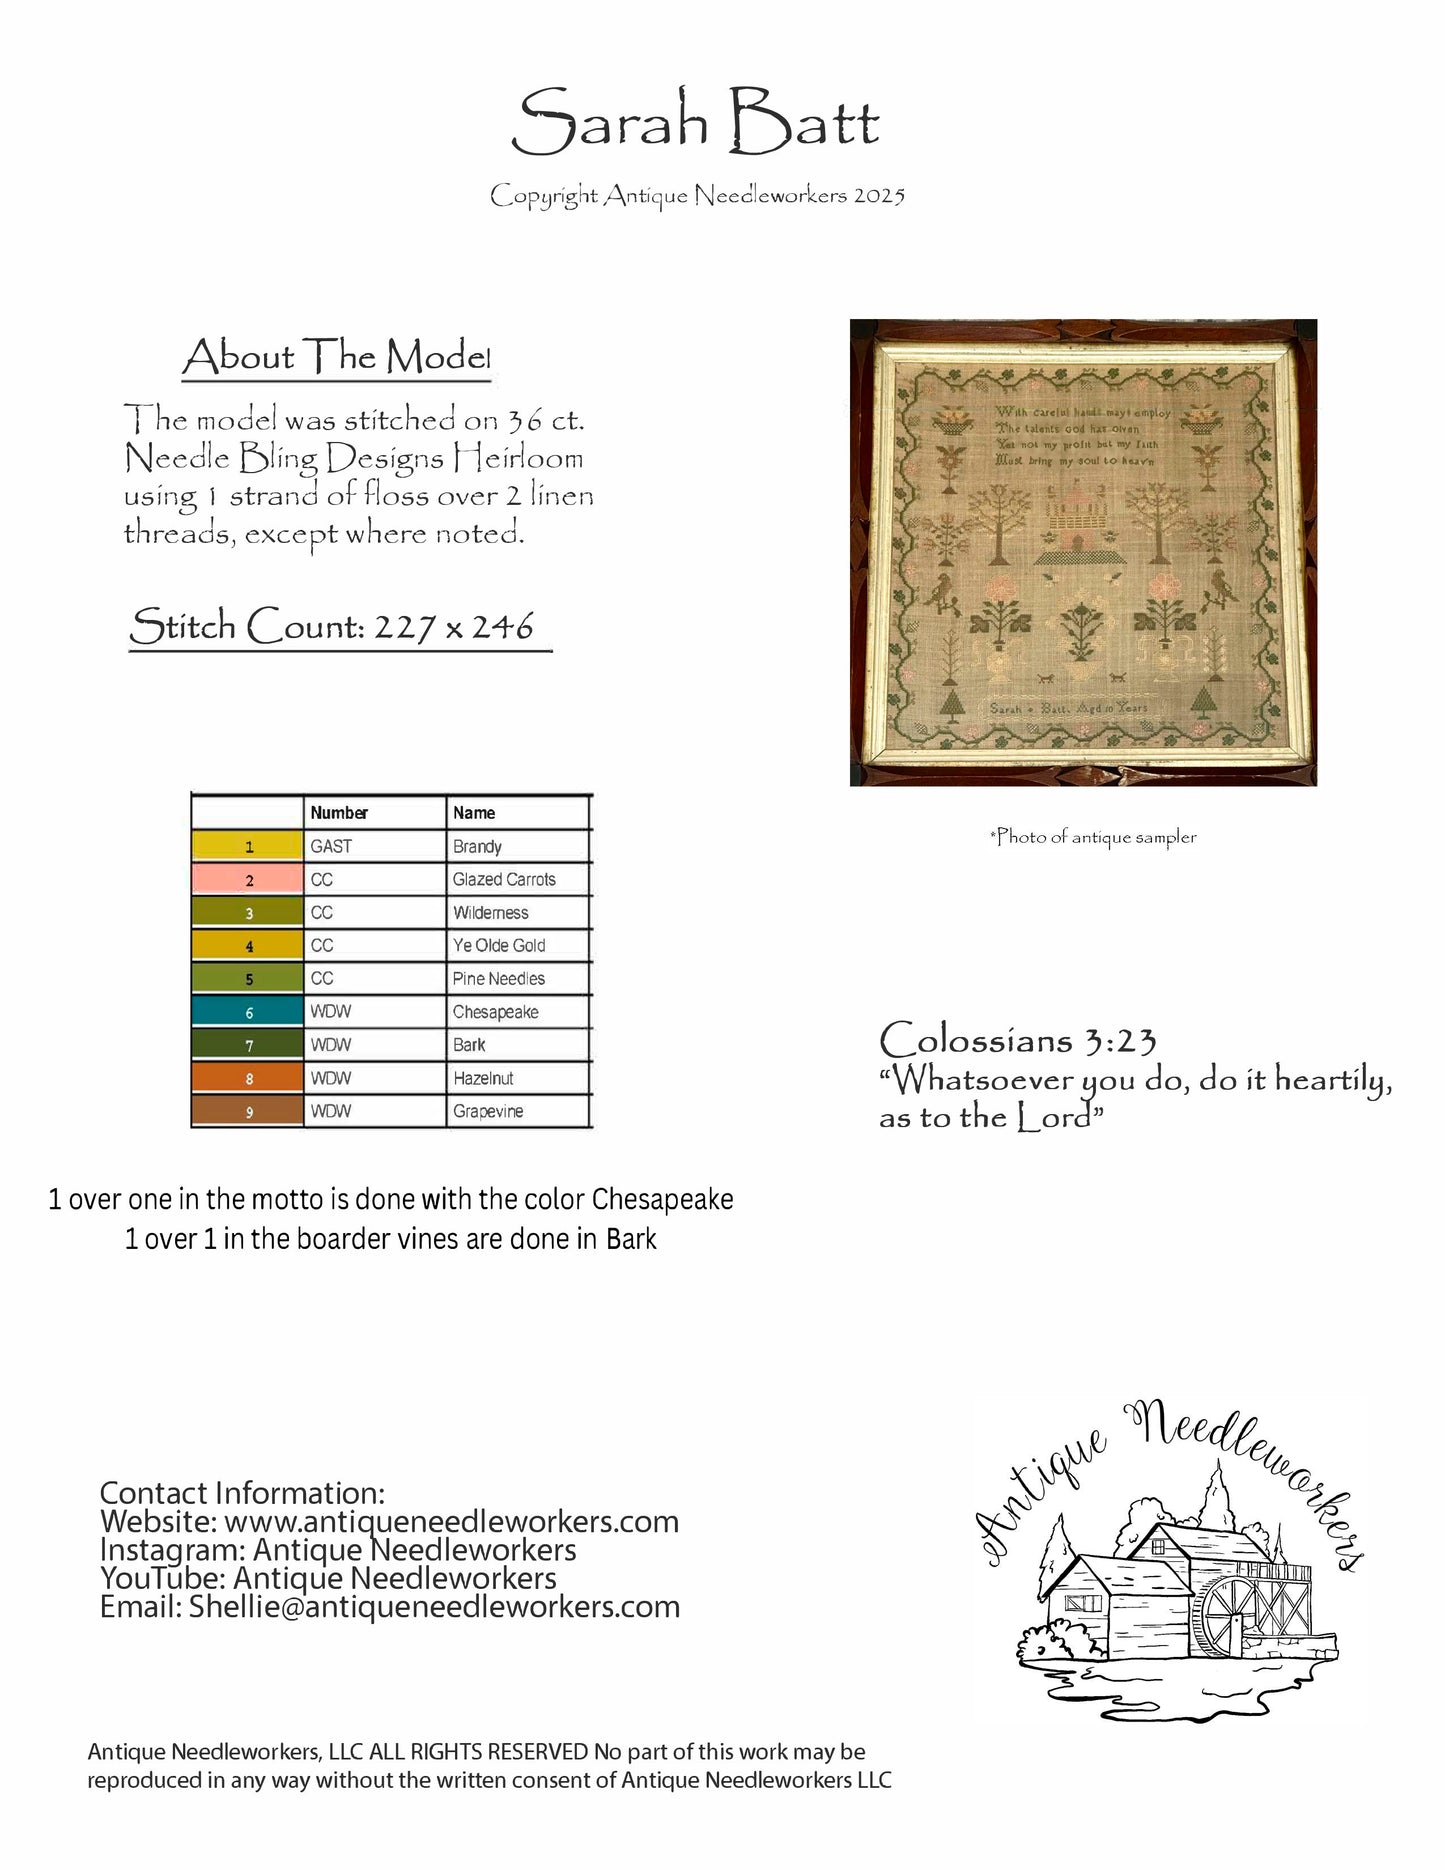 Sarah Batt
Copyright Antique Needleworkers 2025
About The Model
The model was stitched on 36 ct.
Needle Bling Designs Heirloom
using 1 strand of floss over 2 linen
threads, except where noted.
Stitch Count: 227 x 246
With careful hands may I employ
The talents God has given
Yet not my profit but my faith
Must bring my soul to heav'n
Sarah Batt. Aged 10 Years
*Photo of antique sampler
Number Name
1 GAST Brandy
2 CC Glazed Carrots
3 CC Wilderness
4 CC Ye Olde Gold
5 CC Pine Needles
6 WDW Chesapeake
7 WDW Bark
8 WDW Hazelnut
9 WDW Grapevine
Colossians 3:23
“Whatsoever you do, do it heartily,
as to the Lord”
1 over one in the motto is done with the color Chesapeake
1 over 1 in the boarder vines are done in Bark
Contact Information:
Website: www.antiqueneedleworkers.com
Instagram: Antique Needleworkers
YouTube: Antique Needleworkers
Email: Shellie@antiqueneedleworkers.com
Antique Needleworkers
Antique Needleworkers, LLC ALL RIGHTS RESERVED No part of this work may be
reproduced in any way without the written consent of Antique Needleworkers LLC